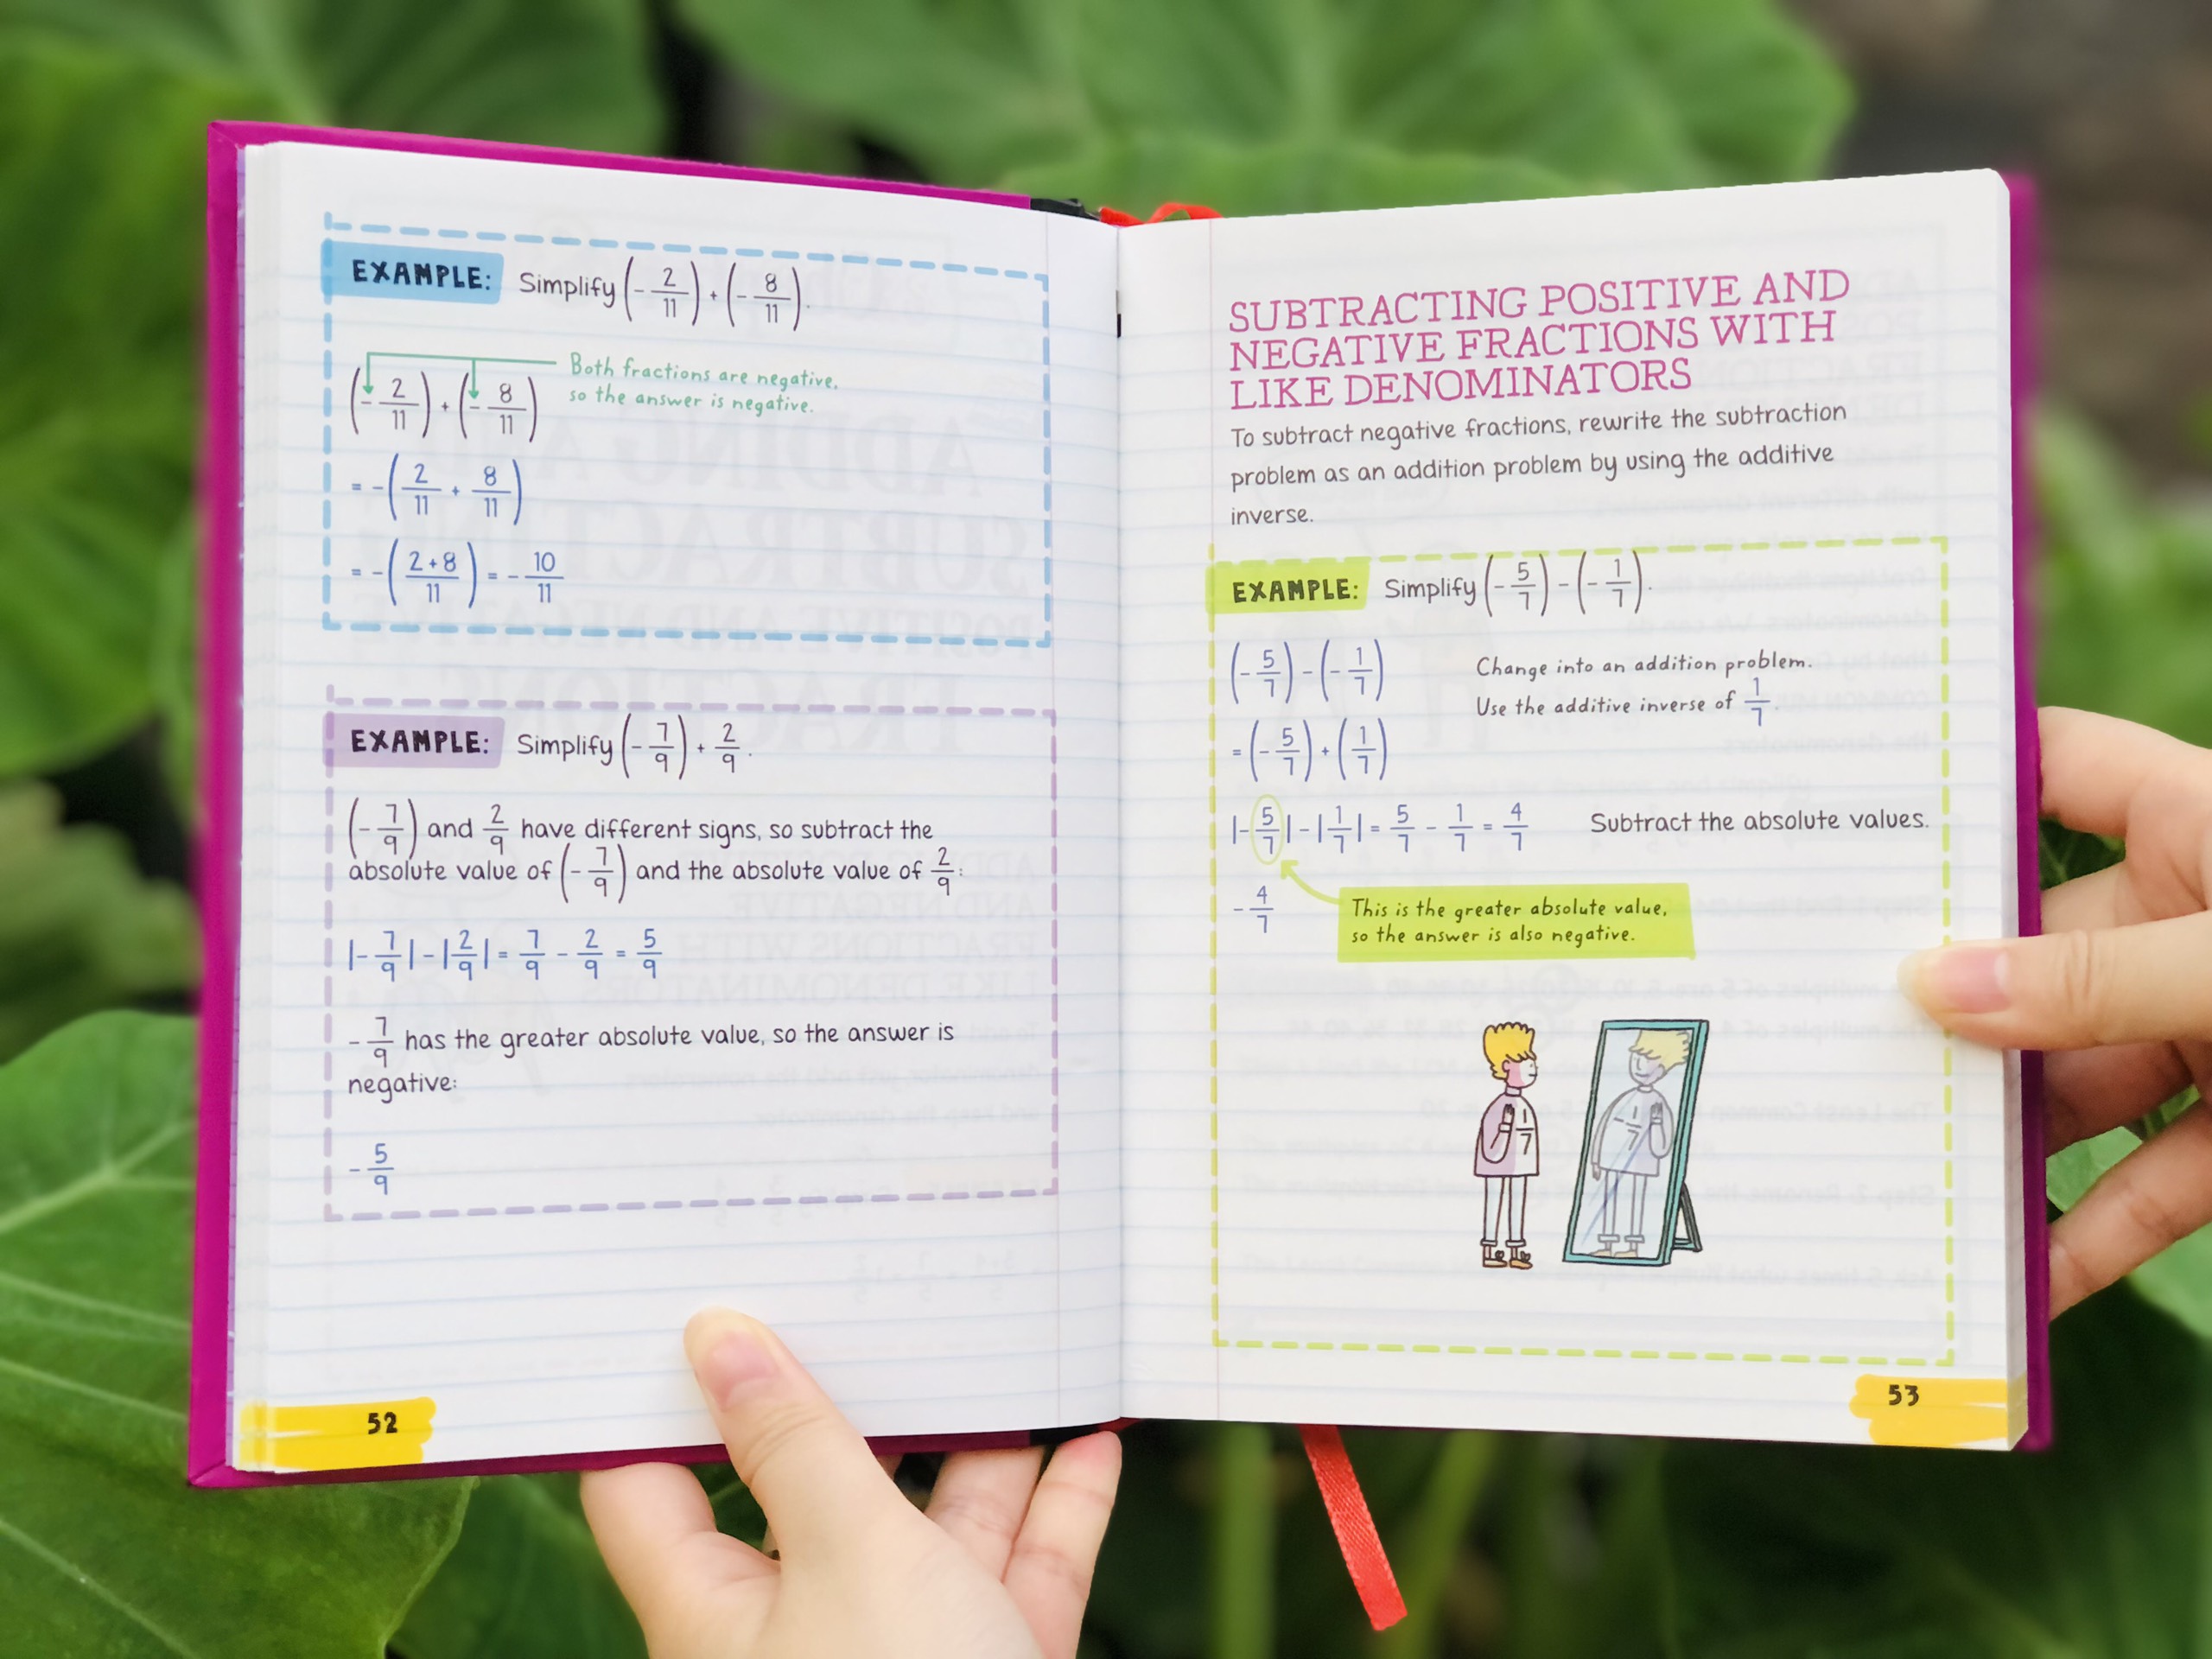 EXAMPLE: Simplify (-2/11) + (-8/11).
Both fractions are negative,
so the answer is negative.
(-2/11) + (-8/11)
= -(2/11 + 8/11)
= -(2+8/11) = -10/11
EXAMPLE: Simplify (-7/9) + 2/9.
(-7/9) and 2/9 have different signs, so subtract the
absolute value of (-7/9) and the absolute value of 2/9:
|-7/9| - |2/9| = 7/9 - 2/9 = 5/9
-7/9 has the greater absolute value, so the answer is
negative:
-5/9
52
SUBTRACTING POSITIVE AND
NEGATIVE FRACTIONS WITH
LIKE DENOMINATORS
To subtract negative fractions, rewrite the subtraction
problem as an addition problem by using the additive
inverse.
EXAMPLE: Simplify (-5/7) - (-1/7).
(-5/7) - (-1/7)
Change into an addition problem.
Use the additive inverse of 1/7.
= (-5/7) + (1/7)
|-5/7| - |1/7| = 5/7 - 1/7 = 4/7 Subtract the absolute values.
-4/7
This is the greater absolute value,
so the answer is also negative.
1/7
-1/7
53